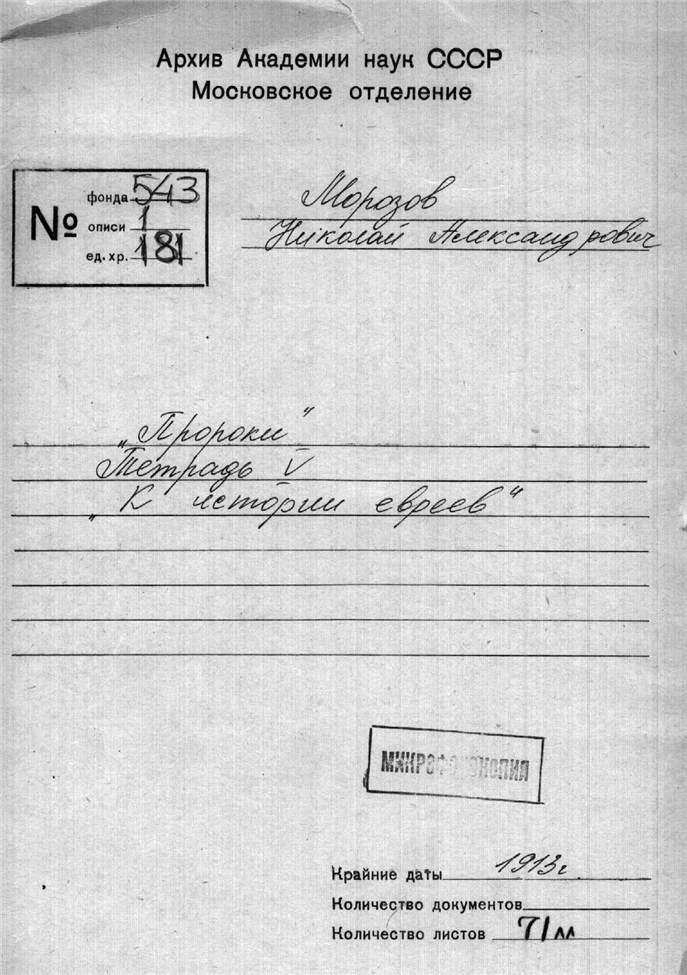 Архив Академии наук СССР
Московское отделение
№
фонда 543
описи 1
ед. хр. 181
Морозов
Николай Александрович
„Пророки"
Тетрадь V
„К истории евреев"
МИКРОФОТОКОПИЯ
Крайние даты 1913г
Количество документов
Количество листов 71лл